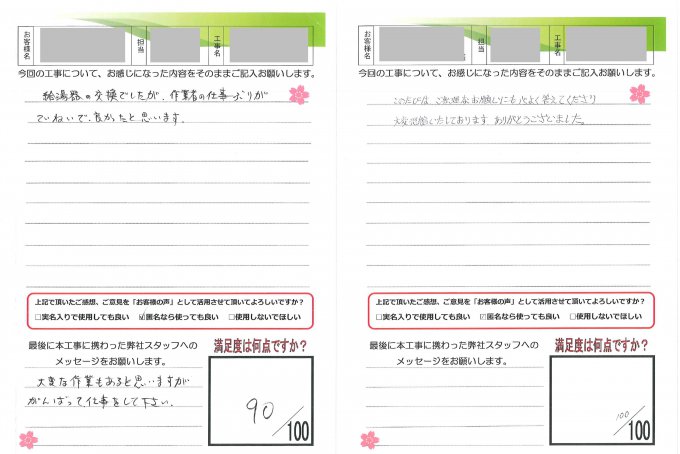 お客様名
担当
工事名
今回の工事について、お感じになった内容をそのままご記入お願いします。
給湯器の交換でしたが、作業者の仕事ぶりが
ていねいで、良かったと思います。
上記で頂いたご感想、ご意見を「お客様の声」として活用させて頂いてよろしいですか？
□実名入りで使用しても良い ☑匿名なら使っても良い □使用しないでほしい
最後に本工事に携わった弊社スタッフへの
メッセージをお願いします。
大変な作業もあると思いますが
がんばって仕事をして下さい。
満足度は何点ですか？
90/100
お客様名
担当
工事名
今回の工事について、お感じになった内容をそのままご記入お願いします。
このたびは、ご無理なお願いにも心よく答えてくださり
大変感謝いたしております ありがとうございました。
上記で頂いたご感想、ご意見を「お客様の声」として活用させて頂いてよろしいですか？
□実名入りで使用しても良い ☑匿名なら使っても良い □使用しないでほしい
最後に本工事に携わった弊社スタッフへの
メッセージをお願いします。
満足度は何点ですか？
100/100